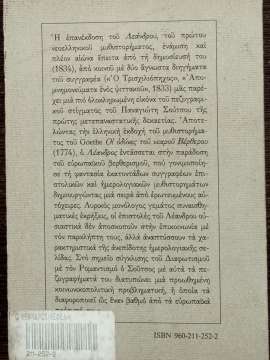 Ἡ ἐπανέκδοση τοῦ Λέανδρου, τοῦ πρώτου
νεοελληνικοῦ μυθιστορήματος, ἑνάμιση καὶ
πλέον αἰώνα ἔπειτα ἀπὸ τὴ δημοσίευσή του
(1834), ἀπὸ κοινοῦ μὲ δύο ἄγνωστα διηγήματα
τοῦ συγγραφέα («Ὁ Τρισχιλιόπηχος», «Ἀπο-
μνημονεύματα ἑνὸς ψιττακοῦ», 1833) μᾶς παρέ-
χει μιὰ πιὸ ὁλοκληρωμένη εἰκόνα τοῦ πεζογραφι-
κοῦ στίγματος τοῦ Παναγιώτη Σούτσου τῆς
πρώτης μετεπαναστατικῆς δεκαετίας. Ἀποτε-
λώντας τὴν ἑλληνικὴ ἐκδοχὴ τοῦ μυθιστορήμα-
τος τοῦ Goethe Οἱ ὀδύνες τοῦ νεαροῦ Βέρθερου
(1774), ὁ Λέανδρος ἐντάσσεται στὴν παράδοση
τοῦ εὐρωπαϊκοῦ βερθερισμοῦ, ποὺ γονιμοποίη-
σε τὴ φαντασία ἑκατοντάδων συγγραφέων ἐπι-
στολικῶν καὶ ἡμερολογιακῶν μυθιστορημάτων
δημιουργώντας μιὰ σειρὰ ἀπὸ ἐρωτευμένους αὐτ-
όχειρες. Λυρικὸς μονόλογος γεμάτος συναισθη-
ματικὲς ἐκρήξεις, οἱ ἐπιστολὲς τοῦ Λέανδρου οὐ-
σιαστικὰ δὲν ἀποσκοποῦν στὴν ἐπικοινωνία μὲ
τὸν παραλήπτη τους, ἀλλὰ ἀναπτύσσουν τὰ χα-
ρακτηριστικὰ τῆς ἀνεπίδοτης ἡμερολογιακῆς σε-
λίδας. Στὸ σημεῖο σύγκλισης τοῦ Διαφωτισμοῦ
μὲ τὸν Ρομαντισμὸ ὁ Σοῦτσος μὲ αὐτὰ τὰ πε-
ζογραφήματά του διατυπώνει μιὰ προωθημένη
κοινωνικοπολιτικὴ προβληματική, ἡ ὁποία τὰ
διαφοροποιεῖ ὣς ἕναν βαθμὸ ἀπὸ τὰ εὐρωπαϊκὰ
211-252-2
ISBN 960-211-252-2